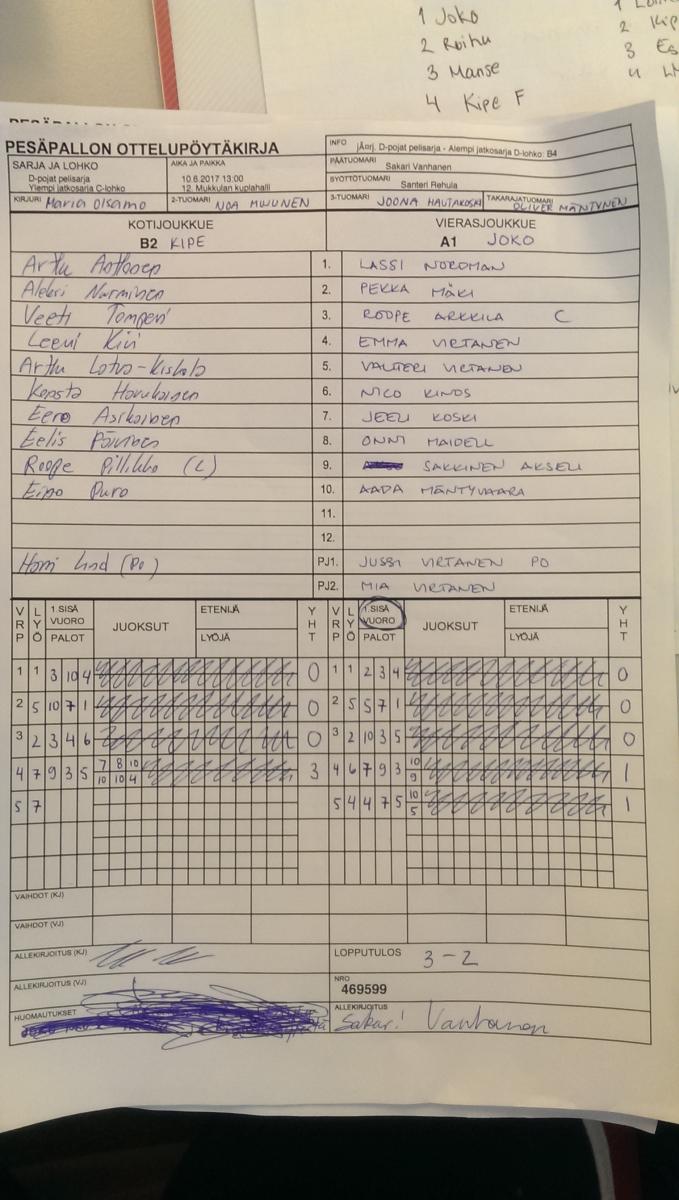 1 Joko
2 Roihu
3 Manse
4 Kipe F
2 Kip
3 Es
PESÄPALLON OTTELUPÖYTÄKIRJA
INFO jÄnrj. D-pojat pelisarja - Alempi jatkosarja D-lohko: B4
SARJA JA LOHKO
D-pojat pelisarja
Ylempi jatkosarja C-lohko
AIKA JA PAIKKA
10.6.2017 13:00
12. Mukkulan kuplahalli
PÄÄTUOMARI Sakari Vanhanen
SYÖTTÖTUOMARI Santeri Rehula
KIRJURI Maria Olsamo 2-TUOMARI NOA MUUNEN 3-TUOMARI JOONA HAUTAKOSKI TAKARAJATUOMARI OLIVER MÄNTYNEN
KOTIJOUKKUE VIERASJOUKKUE
B2 KIPE A1 JOKO
Arttu 1. LASSI NORDMAN
Aleksi Nurminen 2. PEKKA MÄKI
Veeti 3. ROOPE ARKKILA C
Leevi Kivi 4. EMMA VIRTANEN
Arttu 5. VALTTERI VIRTANEN
Konsta 6. NICO KINOS
Eero Asikainen 7. JEELI KOSKI
Eelis 8. ONNI MAIDELL
Roope (C) 9. SAKKINEN AKSELI
Eino Puro 10. AADA MÄNTYVAARA
11.
12.
Lind (PO) PJ1. JUSSI VIRTANEN PO
PJ2. MIA VIRTANEN
VRP LYÖ 1.SISÄVUORO PALOT JUOKSUT ETENIJÄ LYÖJÄ YHT VRP LYÖ 1.SISÄVUORO PALOT JUOKSUT ETENIJÄ LYÖJÄ YHT
1 1 3 10 4 0 1 1 2 3 4 0
2 5 10 7 1 0 2 5 5 7 1 0
3 2 3 4 6 0 3 2 10 3 5 0
4 7 9 3 5 7/10 8/10 10/4 3 4 6 7 9 3 10/9 1
5 7 5 4 4 7 5 10/5 1
VAIHDOT (KJ)
VAIHDOT (VJ)
ALLEKIRJOITUS (KJ) LOPPUTULOS 3-2
ALLEKIRJOITUS (VJ) NRO 469599
HUOMAUTUKSET ALLEKIRJOITUS Sakari Vanhanen